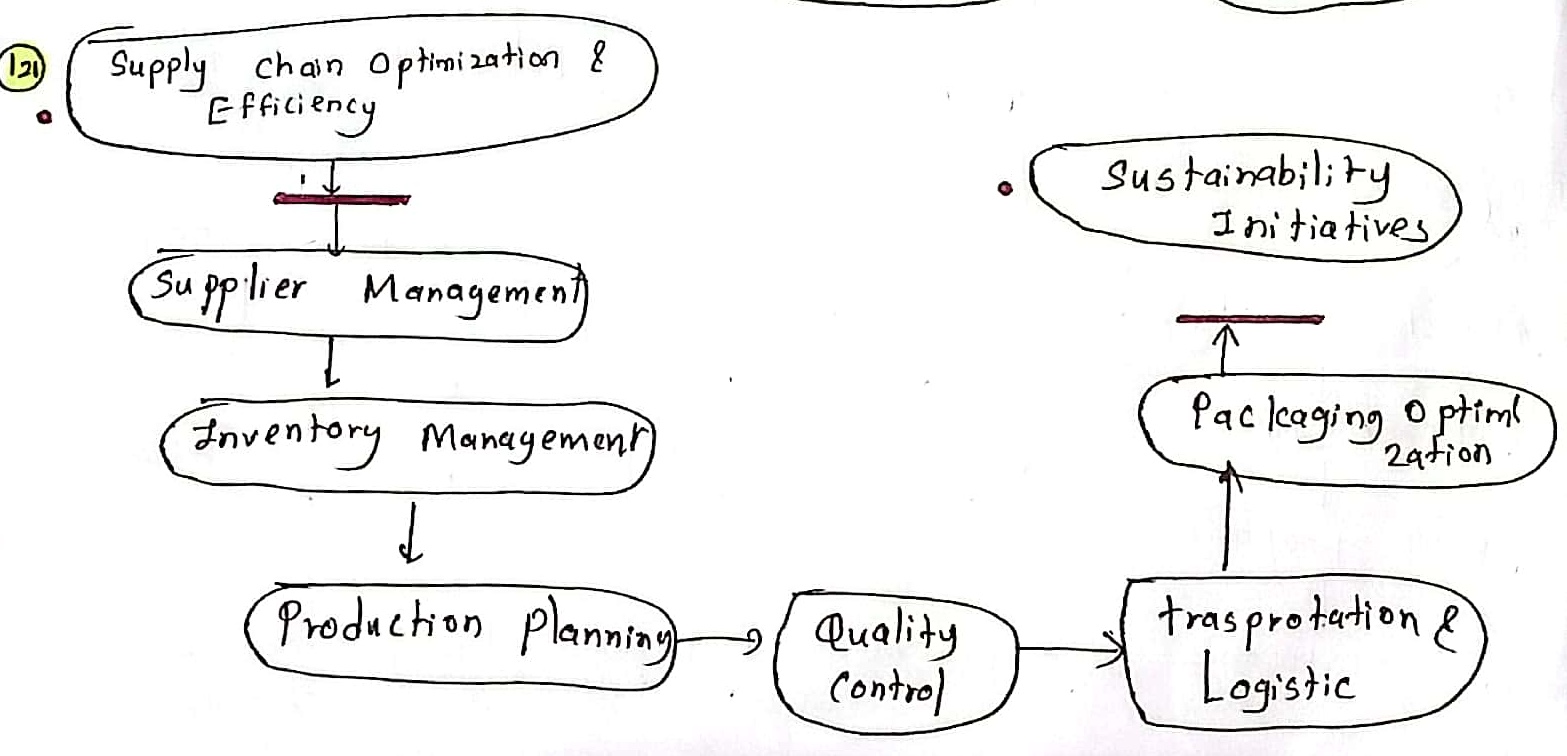 121
Supply chain Optimization &
Efficiency
Supplier Management
Inventory Management
Production Planning
Quality
Control
trasprotation &
Logistic
Packaging Optimi
zation
Sustainability
Initiatives